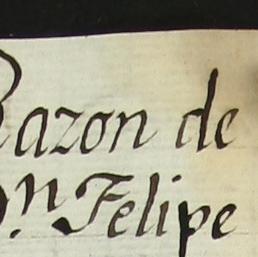 Razon de
Dn. Felipe